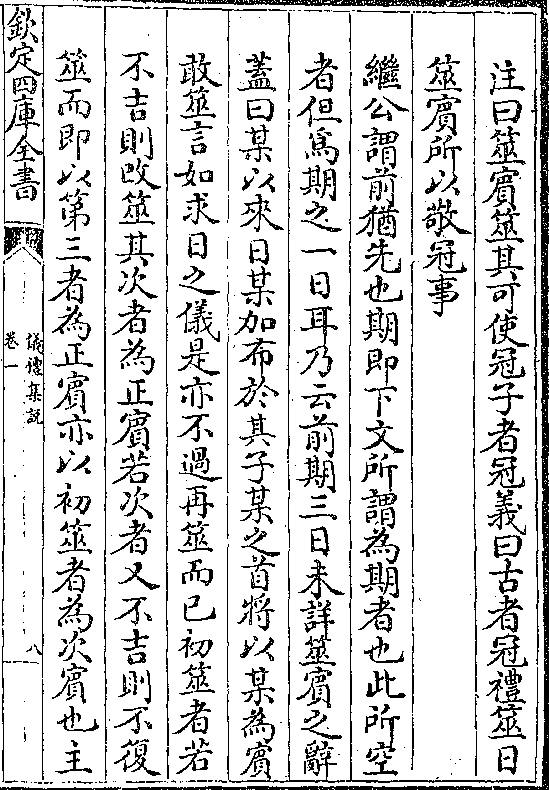 注曰筮賓筮其可使冠子者冠義曰古者冠禮筮日
筮賓所以敬冠事
繼公謂前猶先也期即下文所謂為期者也此所空
者但為期之一日耳乃云前期三日未詳筮賓之辭
蓋曰某以來日某加布於其子某之首將以某為賓
敢筮言如求日之儀是亦不過再筮而已初筮者若
不吉則改筮其次者為正賓若次者又不吉則不復
筮而即以第三者為正賓亦以初筮者為次賓也主
欽定四庫全書
儀禮集說
卷一
八